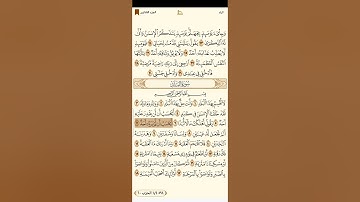 الجزء الثلاثون
وَجِاْىٓءَ يَوْمَئِذٍۭ بِجَهَنَّمَ يَوْمَئِذٍ يَتَذَكَّرُ ٱلْإِنسَٰنُ وَأَنَّىٰ
لَهُ ٱلذِّكْرَىٰ ۝ يَقُولُ يَٰلَيْتَنِى قَدَّمْتُ لِحَيَاتِى ۝ فَيَوْمَئِذٍ
لَّا يُعَذِّبُ عَذَابَهُۥٓ أَحَدٌ ۝ وَلَا يُوثِقُ وَثَاقَهُۥٓ أَحَدٌ ۝ يَٰٓأَيَّتُهَا
ٱلنَّفْسُ ٱلْمُطْمَئِنَّةُ ۝ ٱرْجِعِىٓ إِلَىٰ رَبِّكِ رَاضِيَةً مَّرْضِيَّةً ۝
فَٱدْخُلِى فِى عِبَٰدِى ۝ وَٱدْخُلِى جَنَّتِى ۝
سُورَةُ البَلَدِ
بِسْمِ ٱللَّهِ ٱلرَّحْمَٰنِ ٱلرَّحِيمِ
لَآ أُقْسِمُ بِهَٰذَا ٱلْبَلَدِ ۝ وَأَنتَ حِلٌّۢ بِهَٰذَا ٱلْبَلَدِ ۝ وَوَالِدٍ وَمَا وَلَدَ ۝
لَقَدْ خَلَقْنَا ٱلْإِنسَٰنَ فِى كَبَدٍ ۝ أَيَحْسَبُ أَن لَّن يَقْدِرَ عَلَيْهِ
أَحَدٌ ۝ يَقُولُ أَهْلَكْتُ مَالًا لُّبَدًا ۝ أَيَحْسَبُ أَن لَّمْ يَرَهُۥٓ أَحَدٌ ۝
أَلَمْ نَجْعَل لَّهُۥ عَيْنَيْنِ ۝ وَلِسَانًا وَشَفَتَيْنِ ۝ وَهَدَيْنَٰهُ
ٱلنَّجْدَيْنِ ۝ فَلَا ٱقْتَحَمَ ٱلْعَقَبَةَ ۝ وَمَآ أَدْرَىٰكَ مَا ٱلْعَقَبَةُ ۝
فَكُّ رَقَبَةٍ ۝ أَوْ إِطْعَٰمٌ فِى يَوْمٍ ذِى مَسْغَبَةٍ ۝ يَتِيمًا
ذَا مَقْرَبَةٍ ۝ أَوْ مِسْكِينًا ذَا مَتْرَبَةٍ ۝ ثُمَّ كَانَ مِنَ ٱلَّذِينَ ءَامَنُوا۟
وَتَوَاصَوْا۟ بِٱلصَّبْرِ وَتَوَاصَوْا۟ بِٱلْمَرْحَمَةِ ۝ أُو۟لَٰٓئِكَ أَصْحَٰبُ ٱلْمَيْمَنَةِ ۝